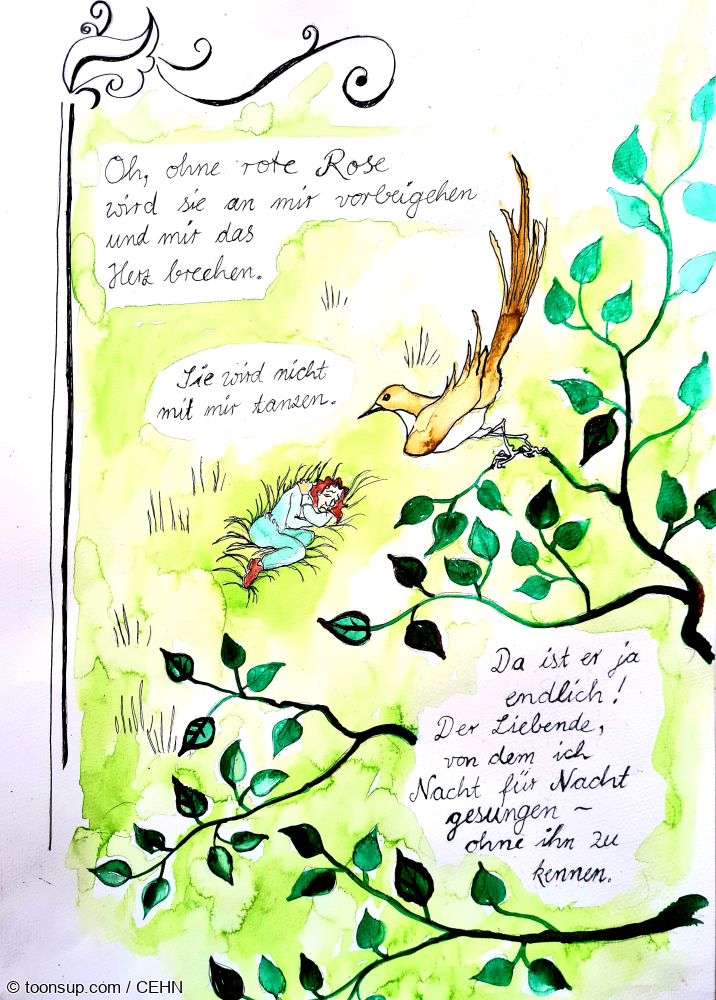 Oh, ohne rote Rose
wird sie an mir vorbeigehen
und mir das
Herz brechen.
Sie wird nicht
mit mir tanzen.
Da ist er ja
endlich!
Der Liebende,
von dem ich
Nacht für Nacht
gesungen ~
ohne ihn zu
kennen.
© toonsup.com / CEHN